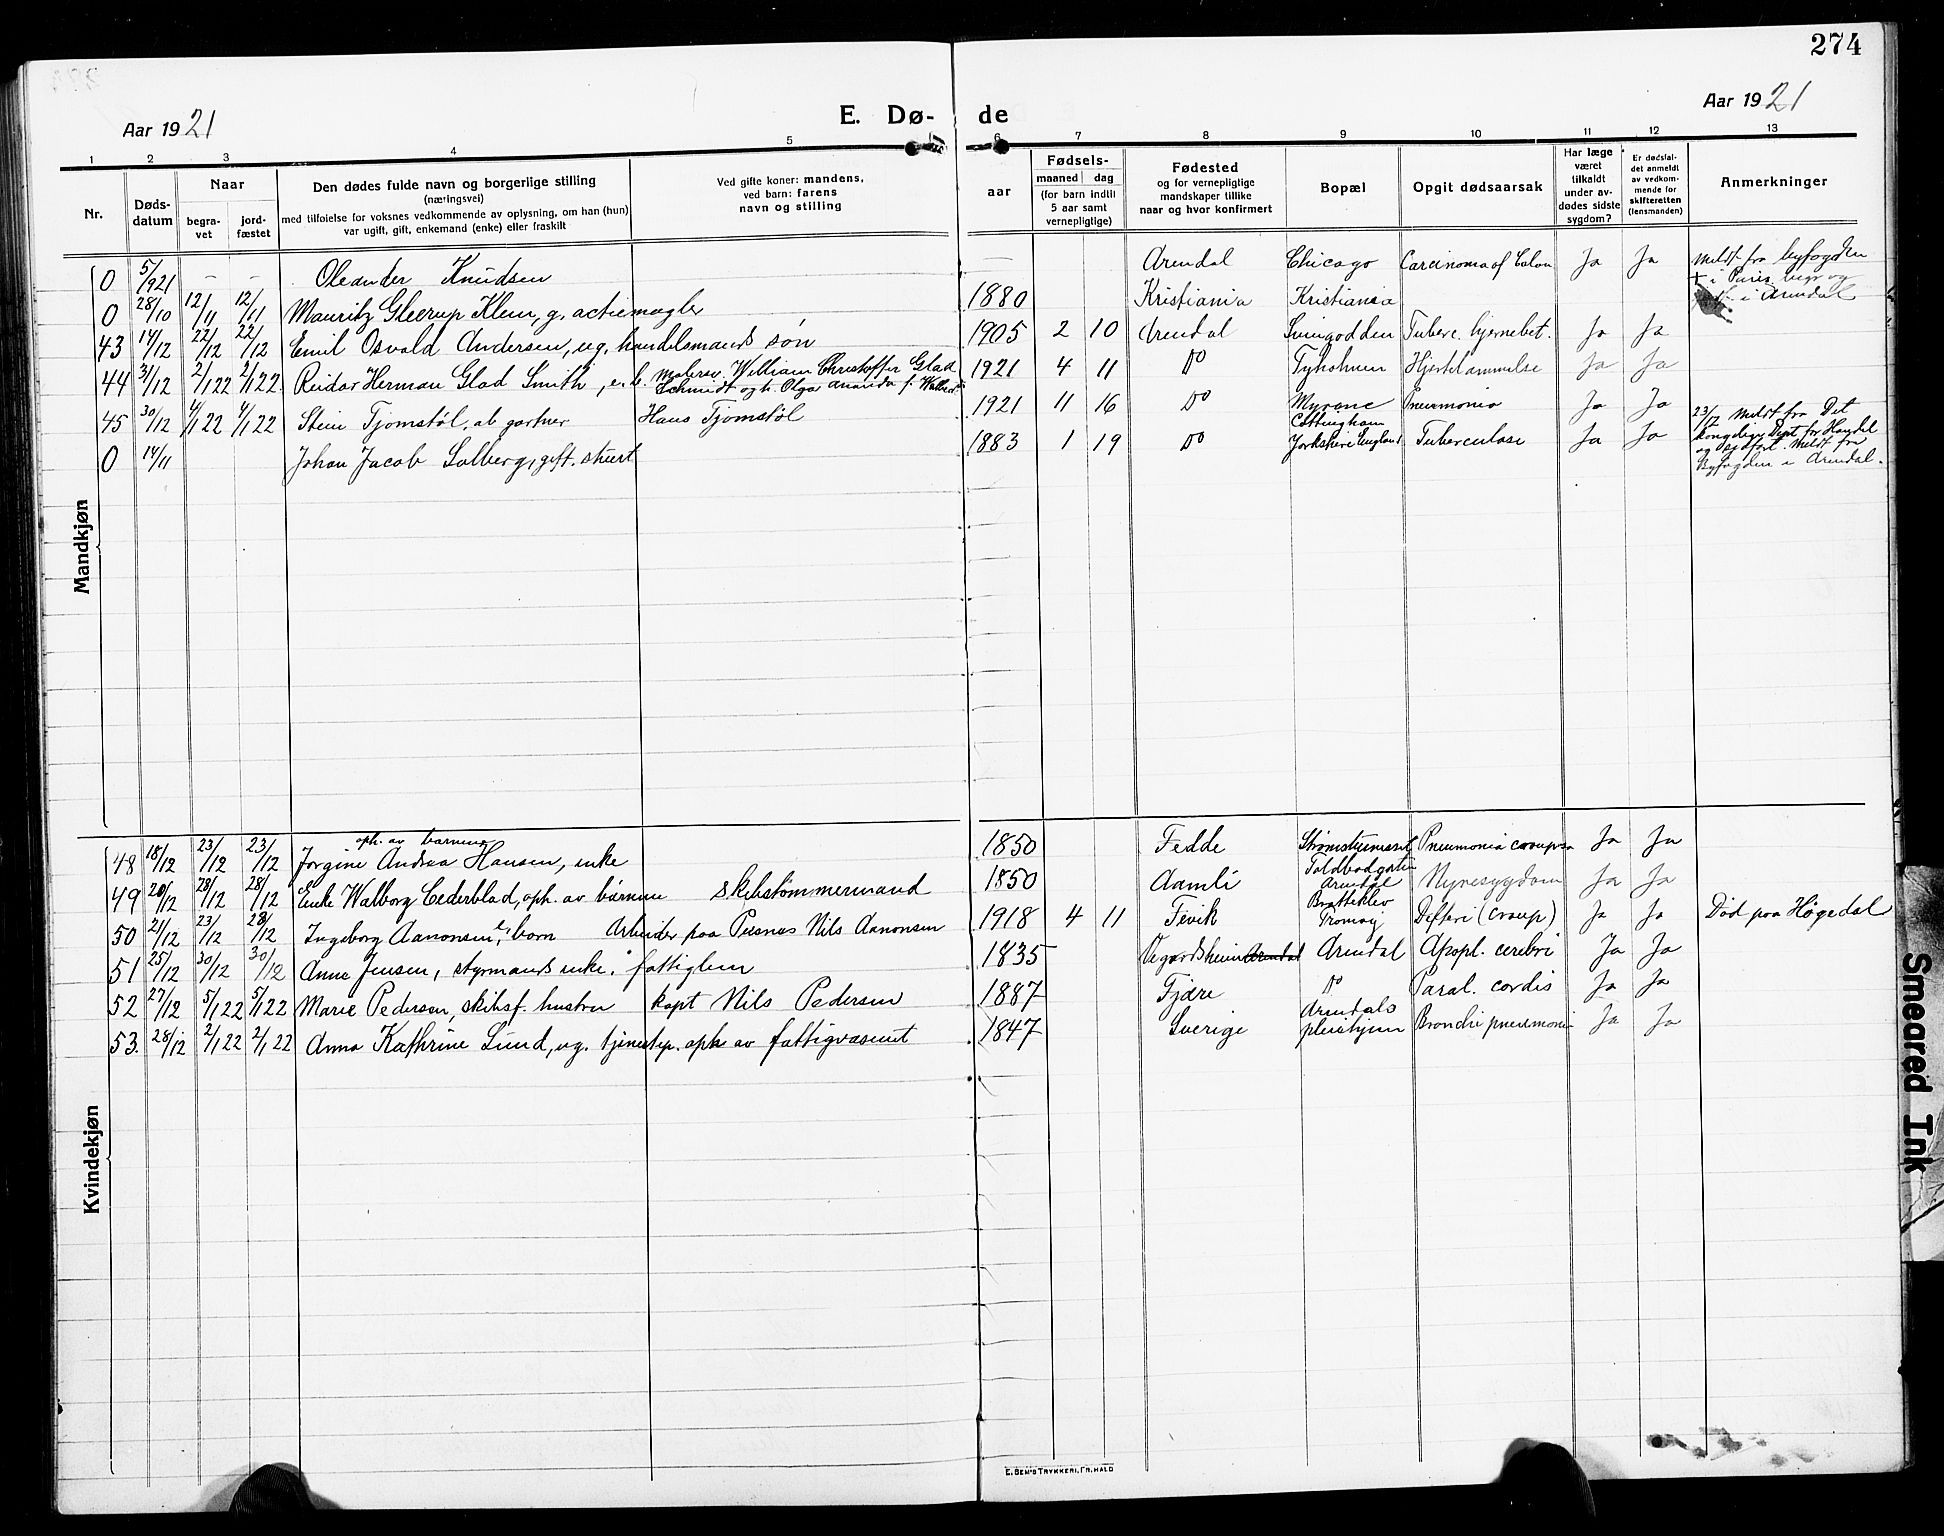 274
Aar 1921
E. Dø-
de
Aar 1921
1 2 3 4 5 6 7 8 9 10 11 12 13
Nr.
Døds-
datum
Naar
begra-
vet
jord-
fæstet
Den dødes fulde navn og borgerlige stilling
(næringsvei)
med tilføielse for voksnes vedkommende av oplysning, om han (hun)
var ugift, gift, enkemand (enke) eller fraskilt
Ved gifte koner: mandens,
ved barn: farens
navn og stilling
aar
Fødsels-
maaned dag
(for barn indtil
5 aar samt
vernepligtige)
Fødested
og for vernepligtige
mandskaper tillike
naar og hvor konfirmert
Bopæl
Opgit dødsaarsak
Har læge
været
tilkaldt
under av-
dødes sidste
sygdom?
Er dødsfal-
det anmeldt
av vedkom-
mende for
skifteretten
(lensmanden)
Anmerkninger
Mandkjøn
0 5/9 21 - - Oleander Knudsen Arendal Chicago Carcinoma of Colon Ja Ja meldt fra byfogden
0 28/10 12/11 12/11 Mauritz Gleerup Klem, g. actiemægler 1880 Kristiania Kristiania + i Paris, begr og i Arendal
43 14/12 22/12 22/12 Emil Osvald Andersen, ug. handelsmands søn 1905 2 10 Arendal Svingodden Tuberc. hjernebet. Ja Ja
44 31/12 2/1 22 2/1 22. Reidar Herman Glad Smith, e. b. Malersv. William Christoffer Glad
Schmidt og h. Olga Amanda f. 1921 4 11 Do Tyholmen Hjertelammelse Ja Ja
45 30/12 4/1 22 4/1 22 Stein Tjomstøl, ab gartner Hans Tjomstøl 1921 11 16 Do Myrene Pneumonia Ja Ja
0 14/11 Johan Jacob Solberg, gift. stuert 1883 1 19 Do Cottingham
Yorkshire England Tuberculose Ja Ja
23/12 meldt fra Det
kongelige Dept for Handel
og Sjøfart. Meldt fra
Byfogden i Arendal.
Kvindekjøn
oph. av barnene
48 18/12 23/12 23/12 Jørgine Andrea Hansen, enke 1850 Fedde Strømsbusneset Pneumonia crouposa Ja Ja
49 20/12 28/12 28/12 Enke Walborg Cederblad, oph. av børnene skibstømmermand 1850 Aamli Toldbodgaten
Arendal Nyresygdom Ja Ja
50 21/12 23/12 28/12 Ingeborg Aanonsen, e. barn Arbeider paa Pusnes Nils Aanonsen 1918 4 11 Fevik Bratteklev
Tromøy Difteri (croup) Ja Ja Død paa Høgedal
51 25/12 30/12 30/12 Anne Jensen, styrmands enke, fattiglem 1835 Vegardsheien Arendal Arendal Apopl. cerebri Ja Ja
52 27/12 5/1 22 5/1 22 Marie Pedersen, skibsf. hustru kapt Nils Pedersen 1887 Fjære Do Paral. cordis Ja Ja
53. 28/12 2/1 22 2/1 22 Anna Kathrine Lund, ug. tjenestep. oph av fattigvæsenet 1847 Sverige Arendals
pleiehjem Bronchi pneumoni Ja Ja
E. SEM'S TRYKKERI, FR.HALD
Smeared Ink